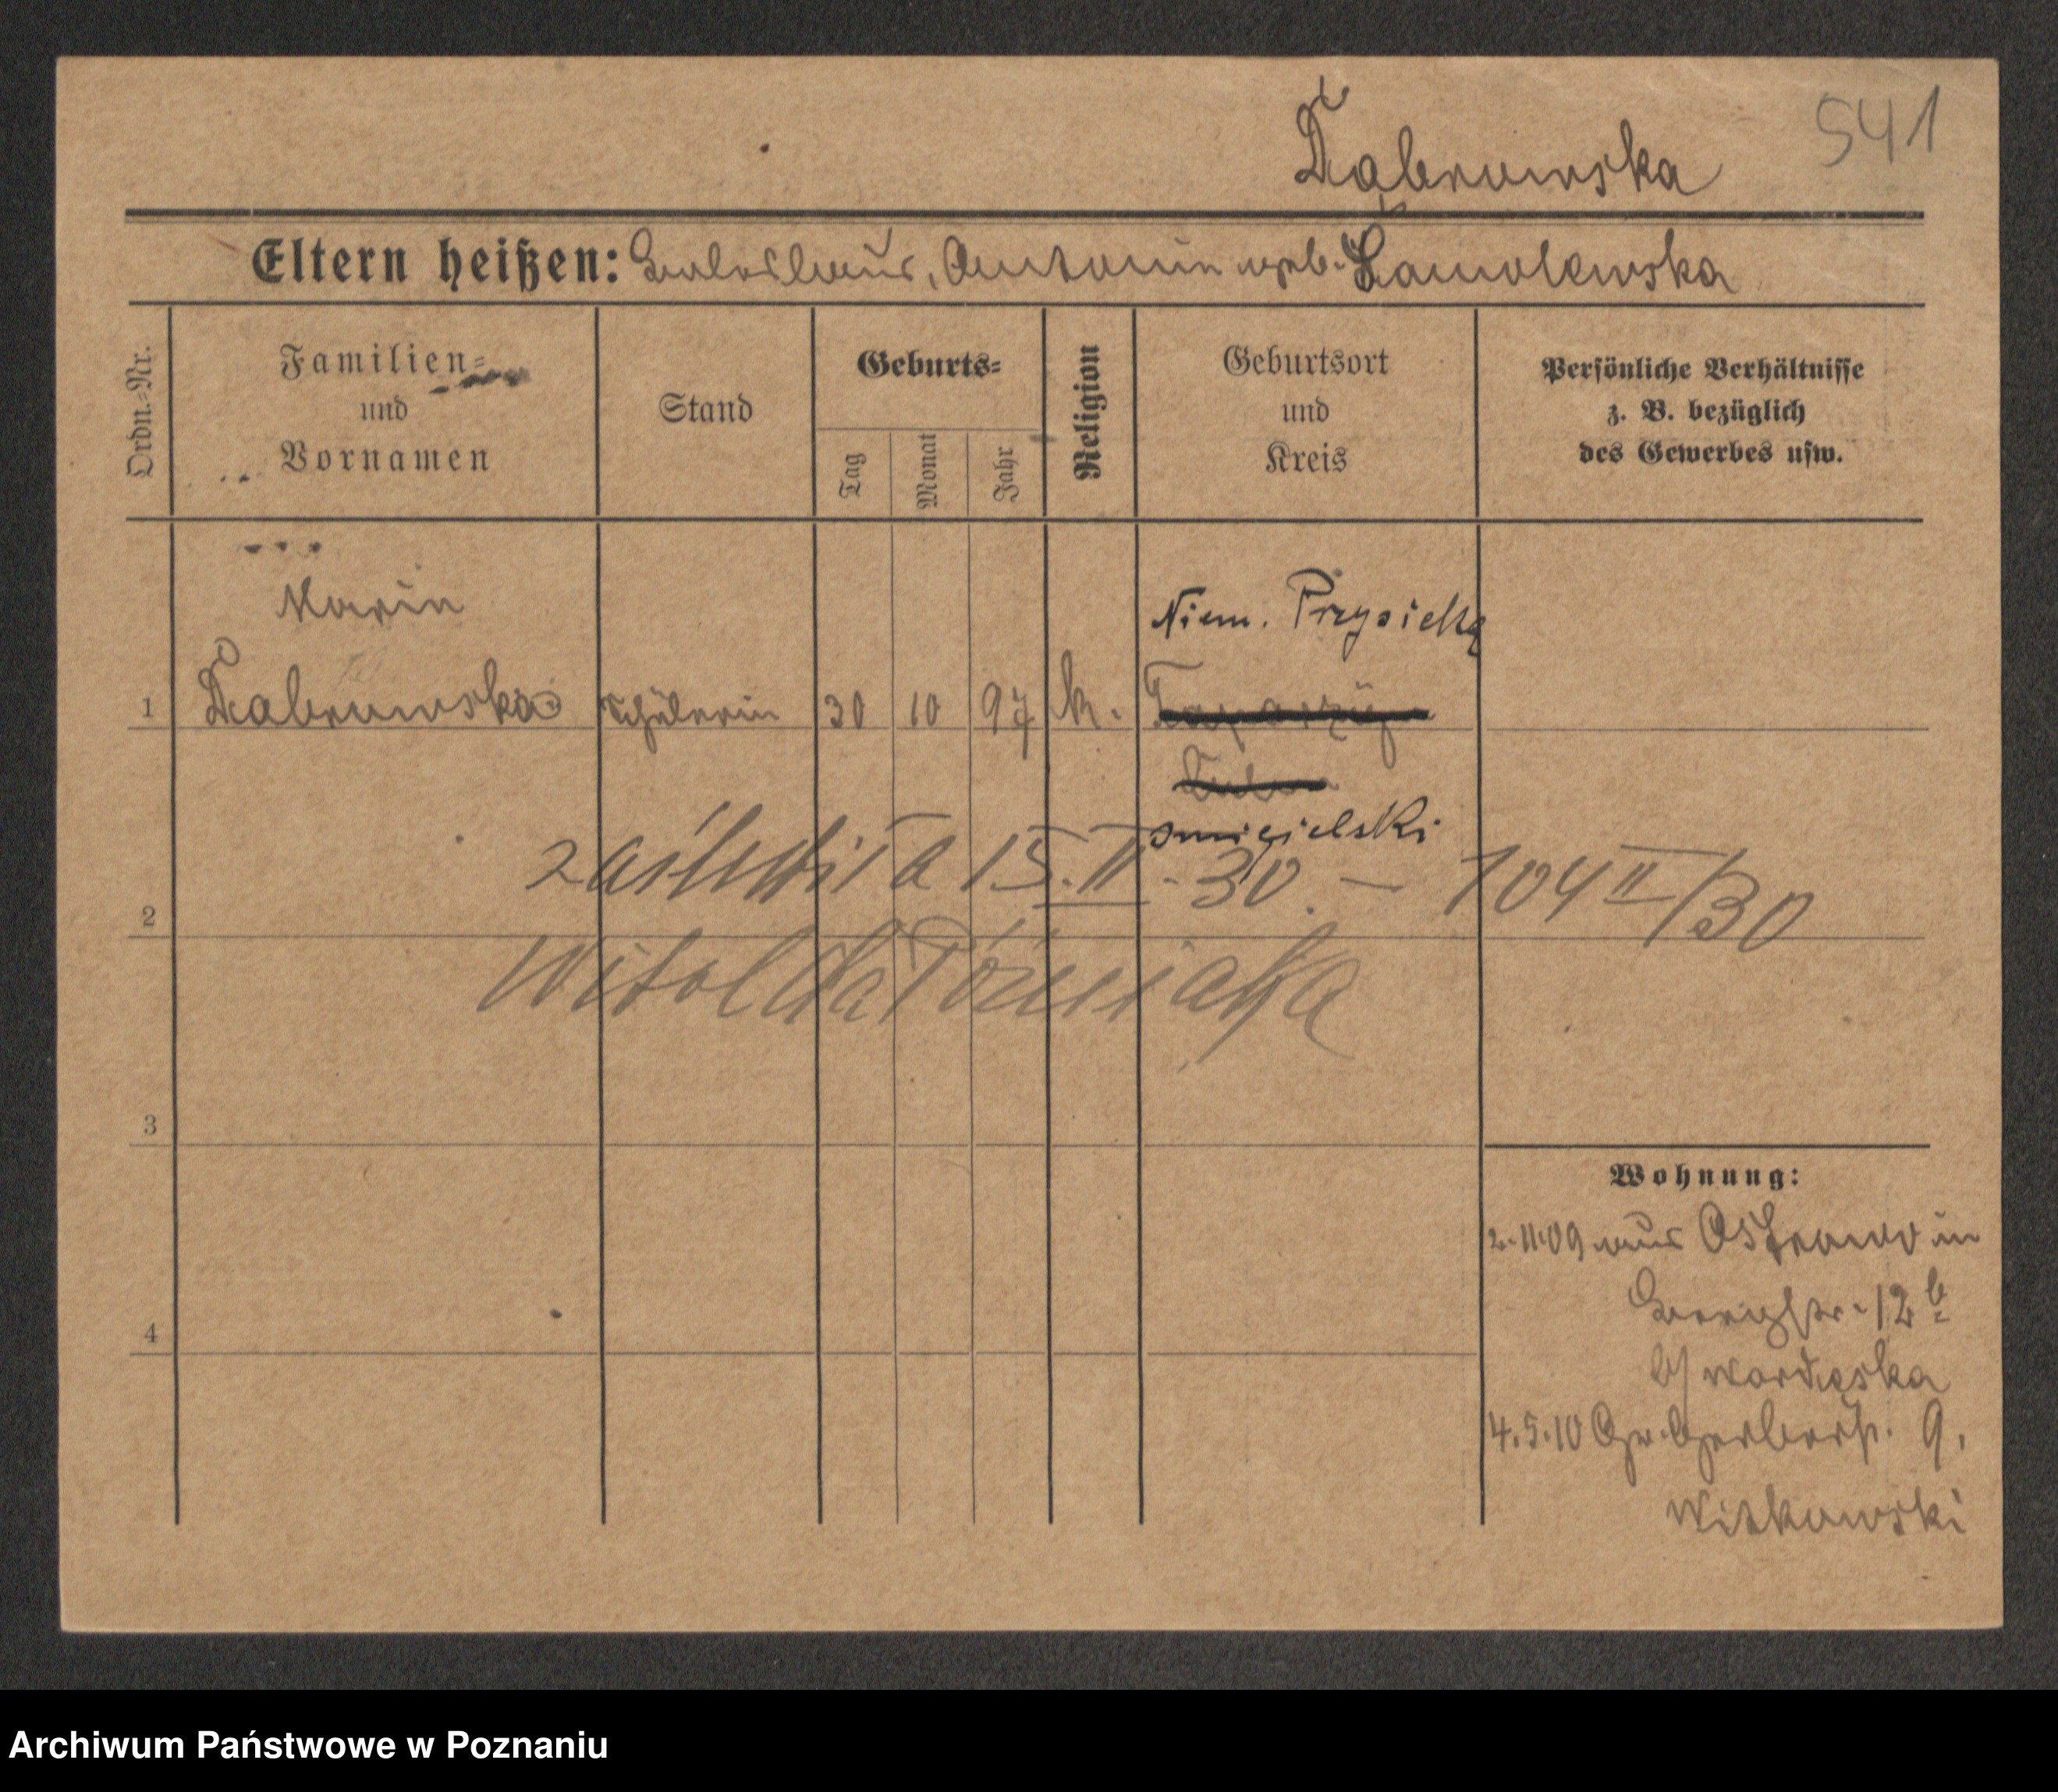 541
Dąbrowska
Eltern heißen: Boleslaus, Antonin geb. Samolewska
Ordn.-Nr.
Familien-
und
Vornamen
Stand
Geburts-
Tag
Monat
Jahr
Religion
Geburtsort
und
Kreis
Persönliche Verhältnisse
z. B. bezüglich
des Gewerbes usw.
Maria
Niem. Przysieka
1 Dąbrowska Schülerin 30 10 97 k.
śmigielski
zaślubiła 15.II.30. — 104 II/30
2
Witolda
3
Wohnung:
2.11.09 aus Ostrowo in
12 b
4
b/ Nardęska
4.5.10 Gr. Gerberstr. 9.
Witkowski
Archiwum Państwowe w Poznaniu